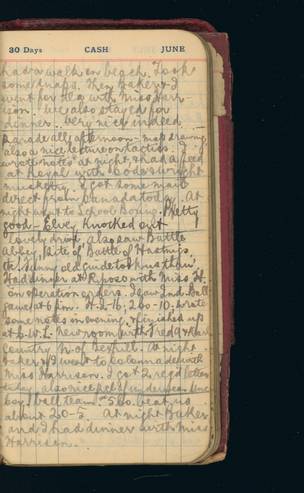 30 Days CASH JUNE
had a walk on beach. Took
some snaps. Then Baker & I
went for tea with Miss Harr-
ison. We also stayed for
dinner. Very nice indeed
Parade all afternoon - map drawing
also a nice lecture on tactics. I
wrote notes at night & had a feed
at Royal with
I got some mail
direct from Canada today. At
night went to School Boxing. Pretty
good - knocked out
Lovely drive, also saw Battle
Abbey, site of Battle of Hastings.
old guide took us thru.
Had dinner at Riposo with Miss H.
on operation orders. I saw Ind. Ball
game at 6 p.m. H. 2-16; 200-10; wrote
some notes in evening. Finished up
at room with
Country N. of Bexhill. At night
Baker & I went to Colonnade with
Miss Harrison. I got 2 reg'd letters
today also nice pkg of undies. Our
boy's ball team 56o. beat us
about 20-5. At night Baker
and I had dinner with Miss
Harrison.